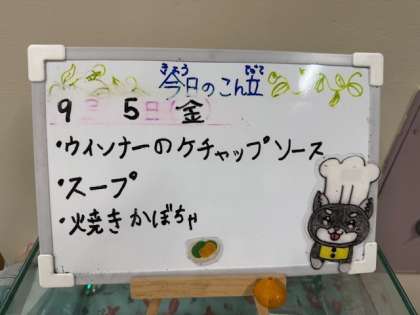 今日のこん立
9月5日(金)
・ウィンナーのケチャップソース
・スープ
・焼きかぼちゃ